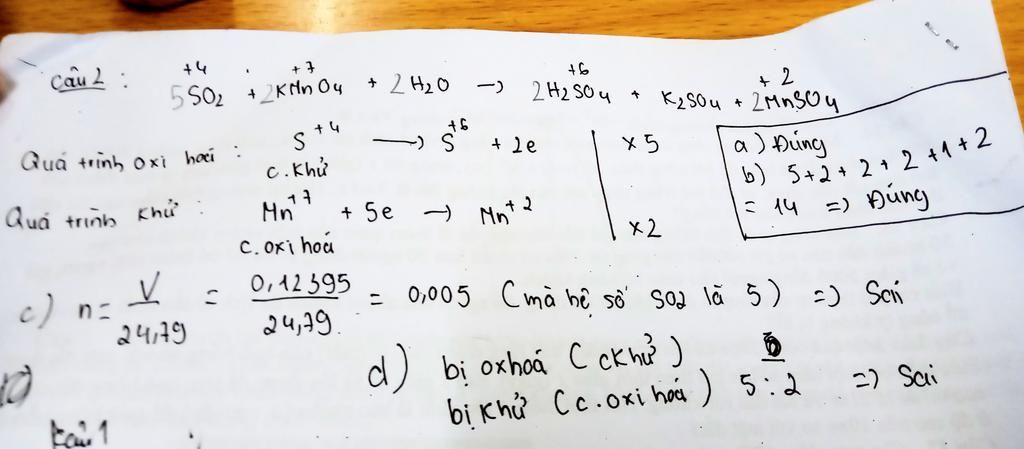 Câu 2 : 5SO2 + 2KMnO4 + 2H2O → 2H2SO4 + K2SO4 + 2MnSO4
+4 +7 +6 +2
Quá trình oxi hoá : S+4 → S+6 + 2e x5
c.khử
Quá trình khử : Mn+7 + 5e → Mn+2 x2
c.oxi hoá
a) Đúng
b) 5+2+2+2+1+2
= 14 => Đúng
c) n = V/24,79 = 0,12395/24,79 = 0,005 (mà hệ số SO2 là 5) => Sai
d) bị oxhoá (cKhử)
bị khử (c.oxi hoá) 5:2 => Sai
Câu 1